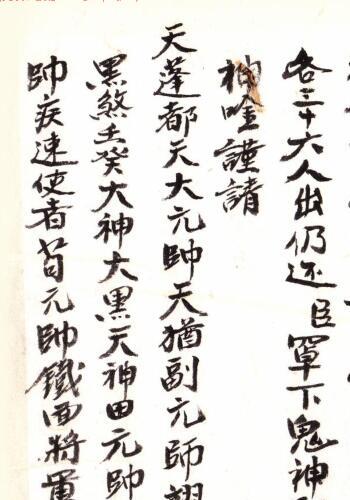 各三十六人出仍还臣罩下鬼神
神唫謹請
天蓬都天大元帥天猶副元師翊
黑煞壬癸大神大黑天神田元帥
帥疾速使者苟元帥鐵面將軍